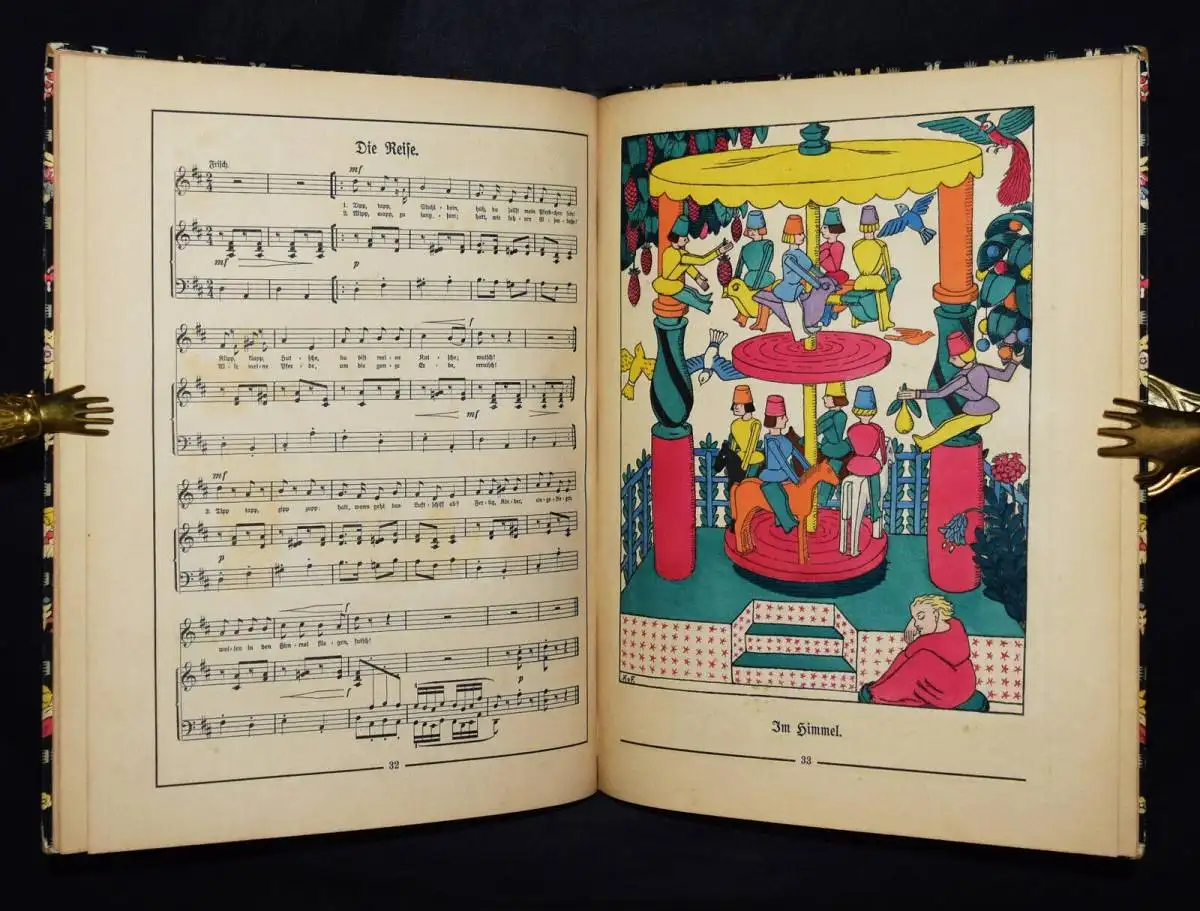 Die Reise.
Frisch.
mf
1. Tipp, tapp, Stuhl-bein, hüh, du sollst mein Pferdchen sein!
2. Wipp, wapp, zu
mf p
f
Klipp, klapp, Hut-sche, du bist mei-ne Kut-sche; wutsch!
Wie mei-ne Pfer-de, um die gan-ze Er-de, rrrutsch!
mf
mf
3. Tipp tapp, zipp zapp; halt, wann geht das Luft-schiff ab? Fer-tig, Kin-der, ein-ge-stie-gen,
p
f
wol-len in den Him-mel flie-gen, futsch!
p
f
32
Im Himmel.
33